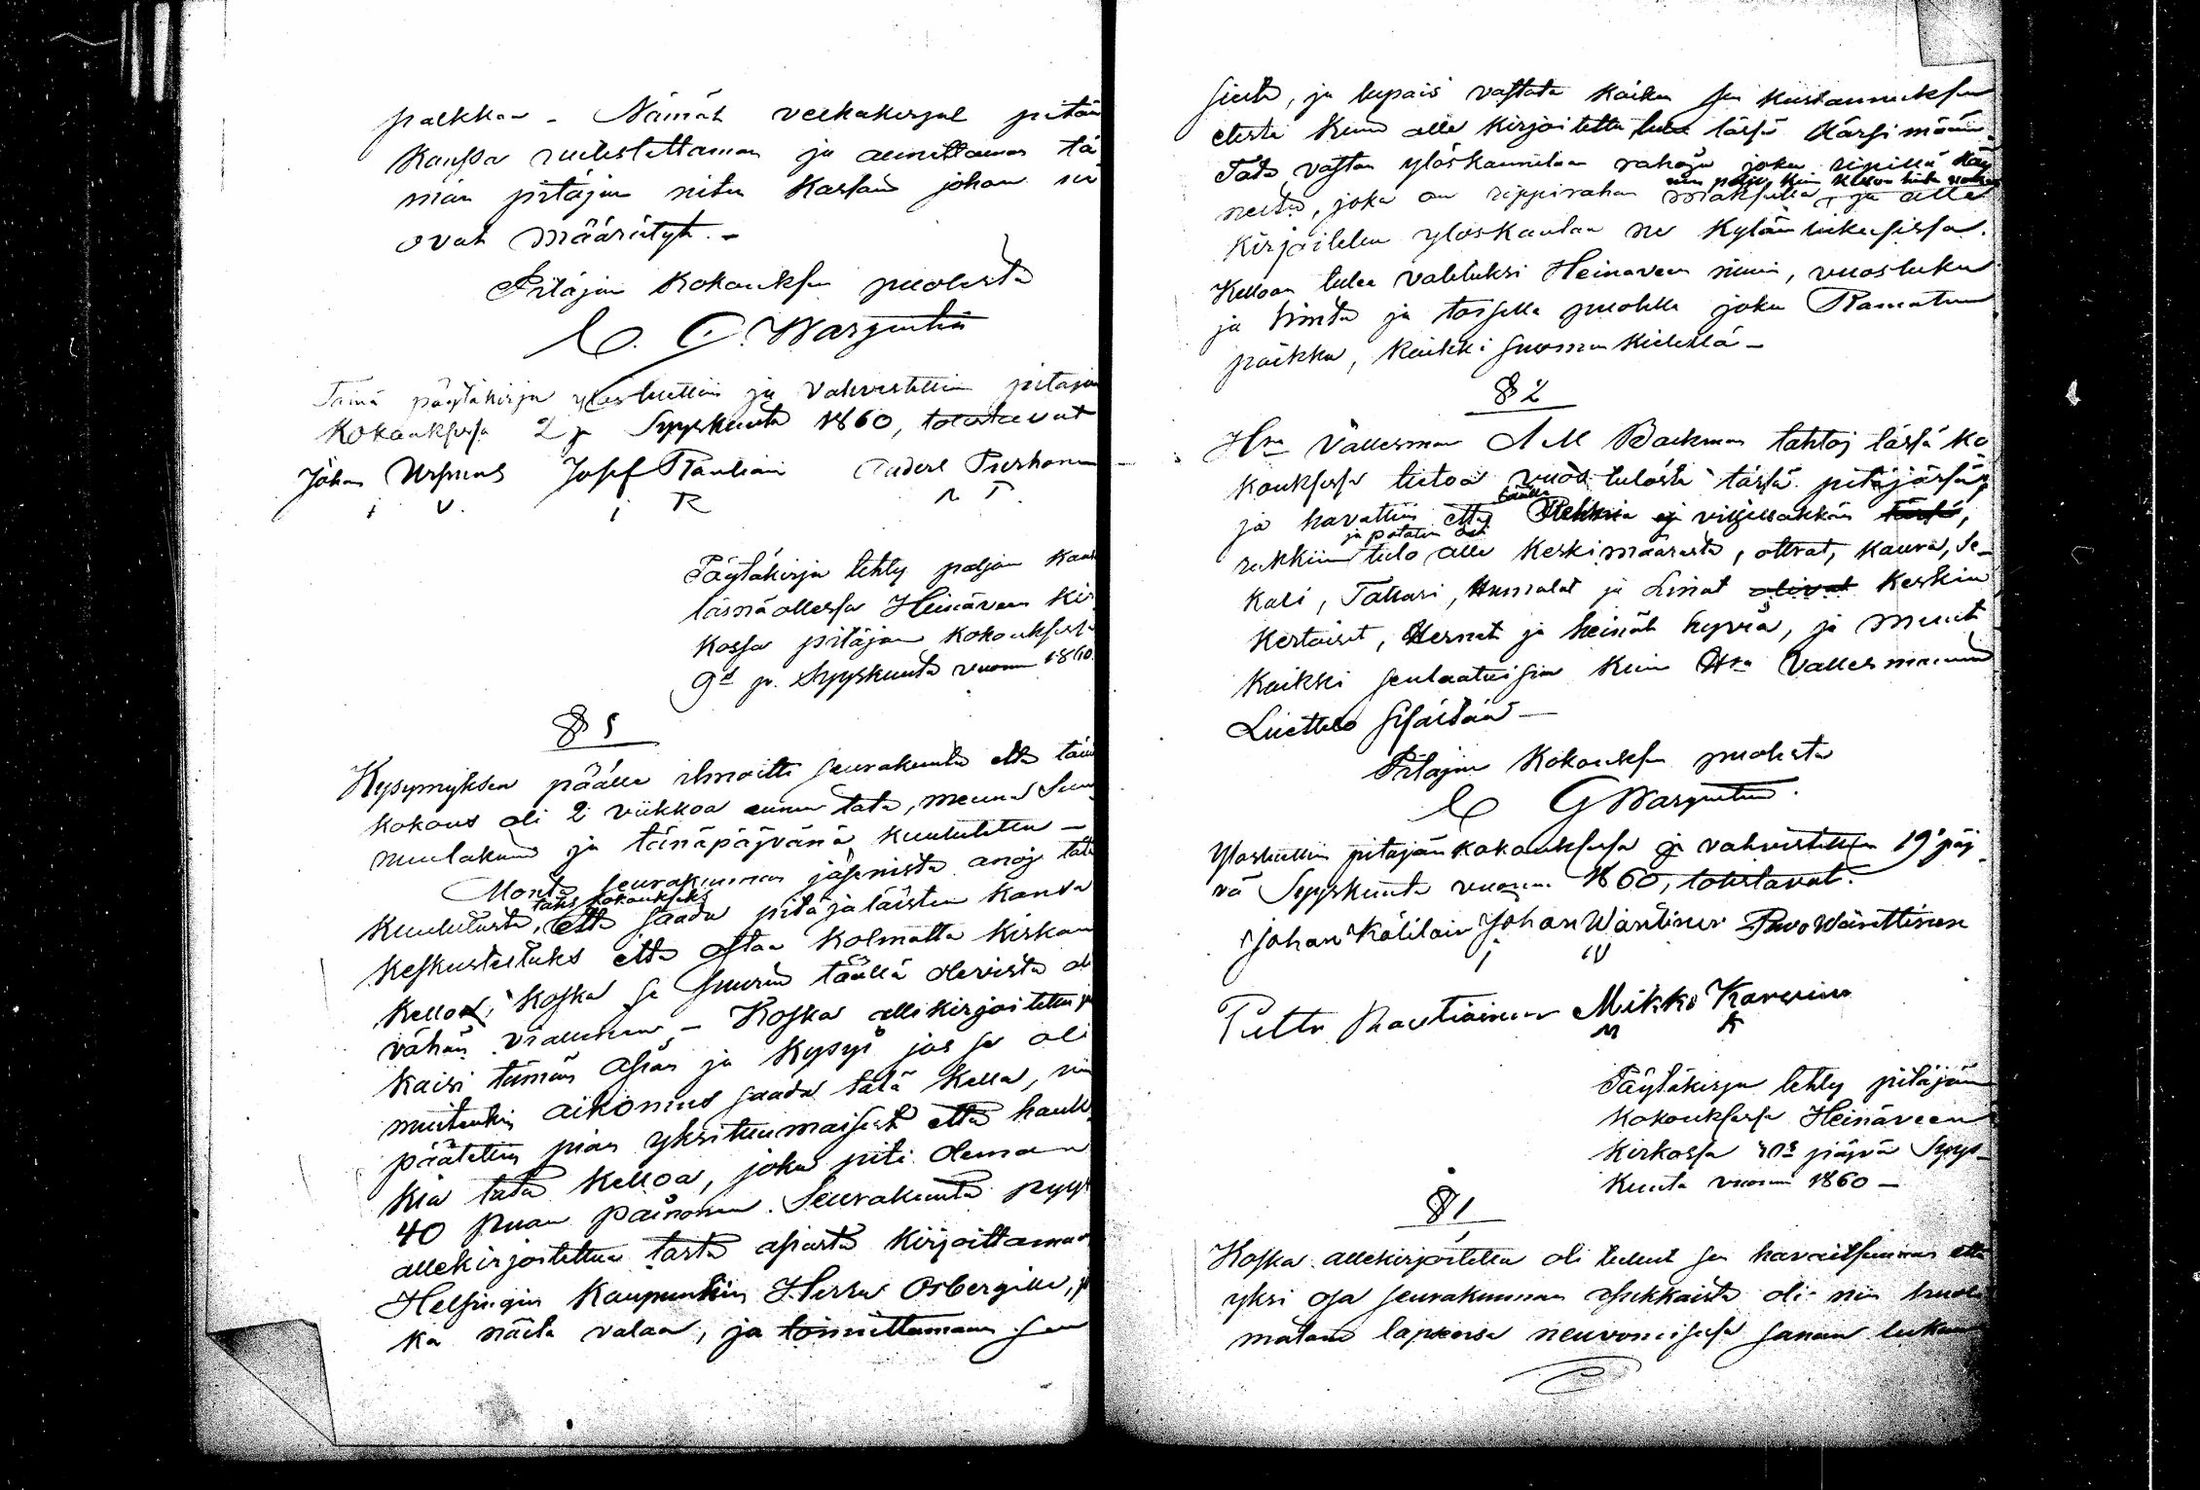 palkkaa - Nämät velkakirjat pitää
kanssa ja annettaman tä
män pitäjän Kassaan johon ne
ovat määrätyt. -
Pitäjän Kokouksen puolesta
C. G. Wargentin
Tämä pöytäkirja ylösluettiin ja vahvistettiin pitäjän
Kokouksessa 2 p Syyskuuta 1860, todistavat
Johan Josef Rautiain
i i R
Pöytäkirja tehty paljon kan
läsnäollessa Heinäveen Kir
kossa pitäjän Kokouksessa
9s p. Syyskuuta vuonna 1860.
§ 1
Kysymyksen päälle ilmoitti seurakunta että tämä
kokous oli 2 viikkoa ennen tätä, menné Sun
nuntakina ja tänäpäivänä kuulutettu -
Monta seurakunnan jäsenistä anoj tätä
täks kokoukseks
kuulutusta, että saada pitäjäläisten kansa
keskustelluks että ostaa kolmatta kirkon
Kelloa, koska se suurin täällä olevista oli
vähän viallinen - Koska allekirjoitettu ju
kaisi tämän asian ja kysyi jos se oli
muitenkin aikomus saada tätä kelloa, niin
päätettiin pian yksituumaisesti että hank
kia tätä kelloa, joka piti oleman
40 puan painonen. Seurakunta pyys
allekirjoitettua tästä asiasta kirjoittaman
Helsingin Kaupunkiin Herra Osbergille, jo
ka näitä valaa, ja toimittamaan sen
sieltä, ja lupais vastata kaiken sen kustannuksen
edestä kuin alle kirjoitettu tulee tässä kärsimään.
Tätä vasten ylöskannetaan rahaa joka ripillä käy
niin paljon kuin kellon hinta
neeltä, joka on rippirahan maksulla, ja alle
kirjoitettu ylöskantaa ne kylän lukusissa.
Kelloon tulee valetuksi Heinäveen nimi, vuosluku
ja hinta ja toisella puolella joku Raamatun
paikka, kaikki suomen kielellä -
§ 2
Hra Vallesman A M Backman tahtoj tässä ko
kouksessa tietoa vuod tulosta tässä pitäjässä,
täällä
ja havattiin että ej viljelläkkään tässä,
ja potatin
rukkiin tulo alle keskimäärästä, ottrat, kaura, se-
kali, Tattari, Humalat ja Linat olivat keskin
kertaiset, Hernet ja heinät hyviä, ja muut
kaikki senlaatuisia kuin Hra Vallesmannin
Luettelo sisältää -
Pitäjän Kokouksen puolesta
C G Wargentin.
Ylösluettiin pitäjänkokouksessa ja vahvistettiin 19 päj
vä Syyskuuta vuonna 1860, todistavat.
Johan Kölilain Johan Wäntinen Pavo Wänttinen
i W
Petter Rautiainen Mikko Karvine
M K
Pöytäkirja tehty pitäjän
kokouksessa Heinäveen
kirkossa päjvä Syys-
kuuta vuonna 1860 -
§ 1
Koska allekirjoitettu oli tullut sen havaitsemaan että
yksi osa seurakunnan asukkaista oli niin huoli
matoin lapsensa neuvomisesa sanan lukun